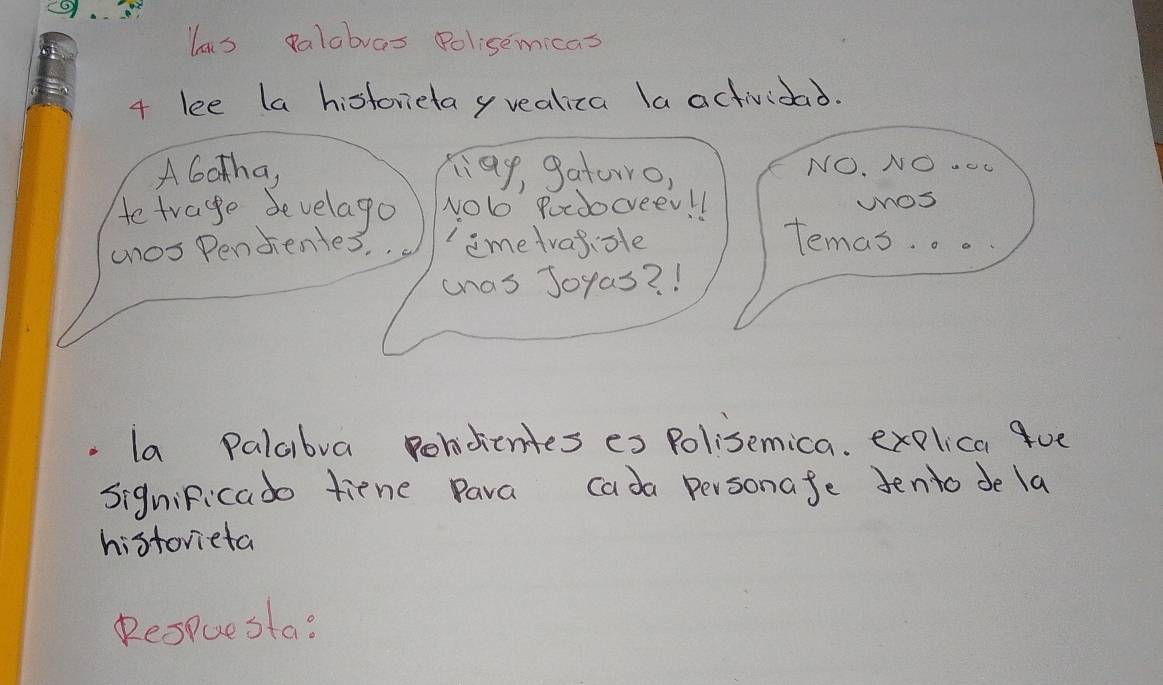 las Palabras Polisémicas
4 lee la historieta y realiza la actividad.
AGatha,
te trage de velago
unos Pendientes...
¡¡ay, gaturro,
No lo Puedo creer!!
¡¿me trajiste
unas Joyas?!
NO. NO ....
unos
Temas....
. la Palabra Pendientes es Polisemica. explica que
significado tiene Para cada personaje dento de la
historieta
Respuesta: